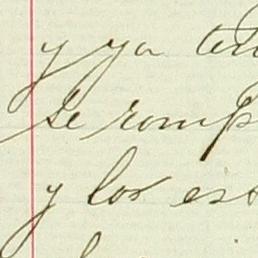 y ya
se romp
y los es